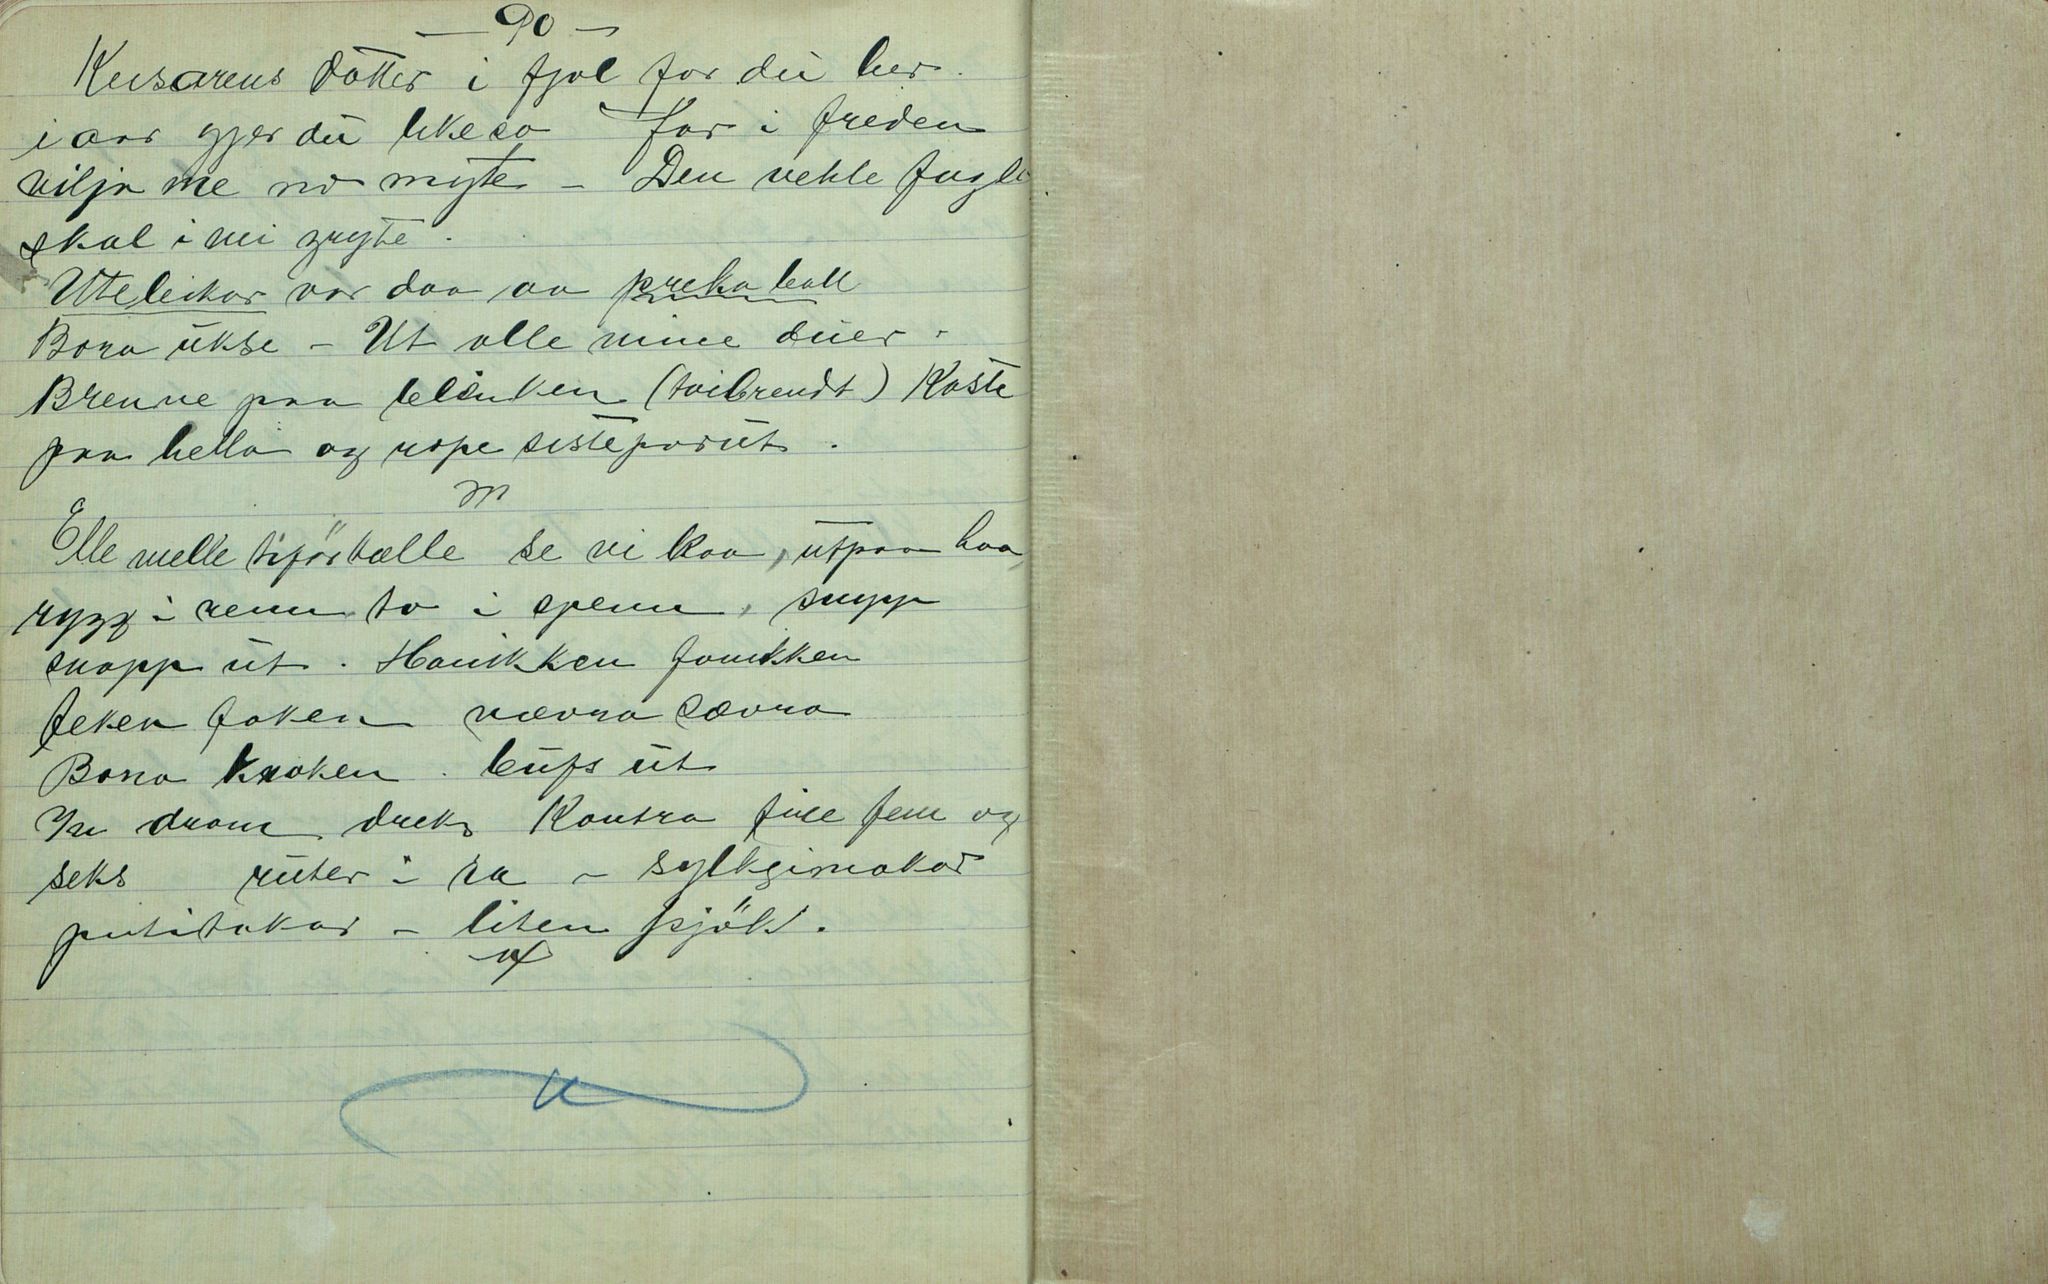 — 90 —
Keisarens dotter i fjol for du her.
i aar gjer du likeso For i freden
vilja me no myte – Den vehle fugl
skal i mi gryte.
Uteleikar var daa aa preka ball
Bora ukse – Ut alle mine duer.
Brenne paa blinken (tvibrendt) Kaste
paa hella og rope sisteparut.
Elle melle tifortælle se vi kaa, utpaa haa,
rygg i renn to i spenn, snipp
snapp ut. Hanikken fanikken
feken faken nævra sævra
Bona kroken. bufs ut
In dram dreks Kontra fire fem og
seks ruter i ra – sylkgimakar
putitakar – liten skjök.